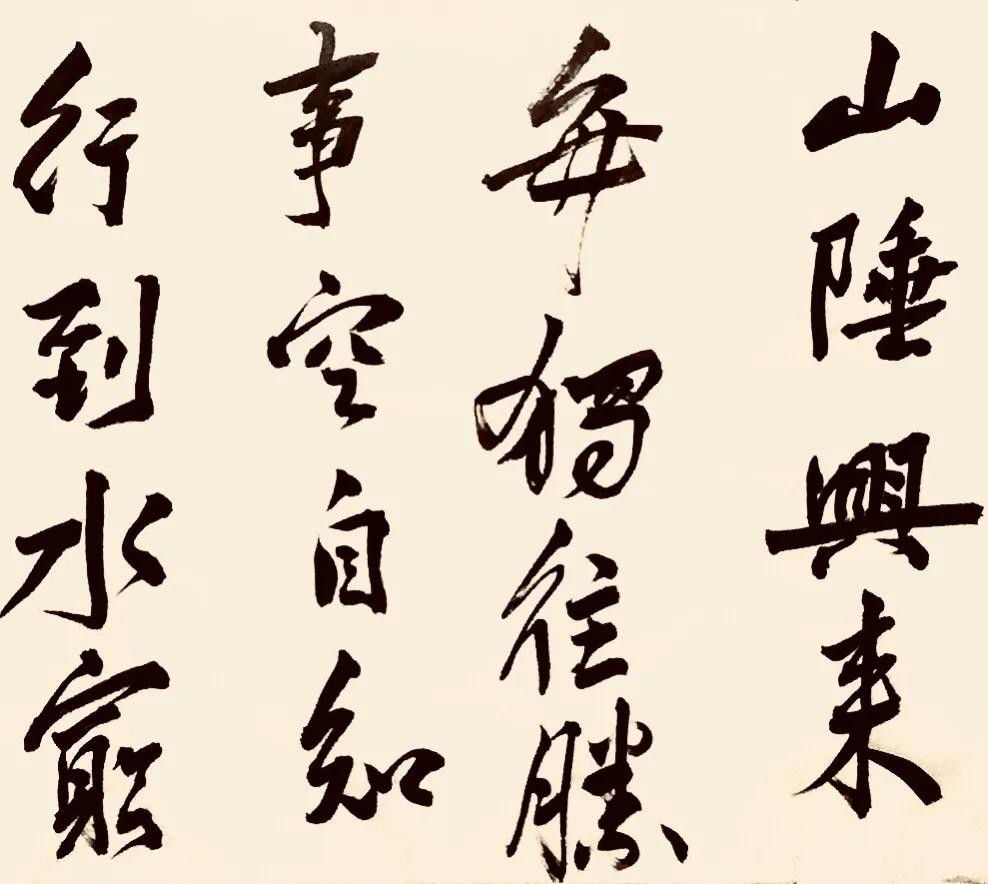 山陲興来
每獨往勝
事空自知
行到水窮